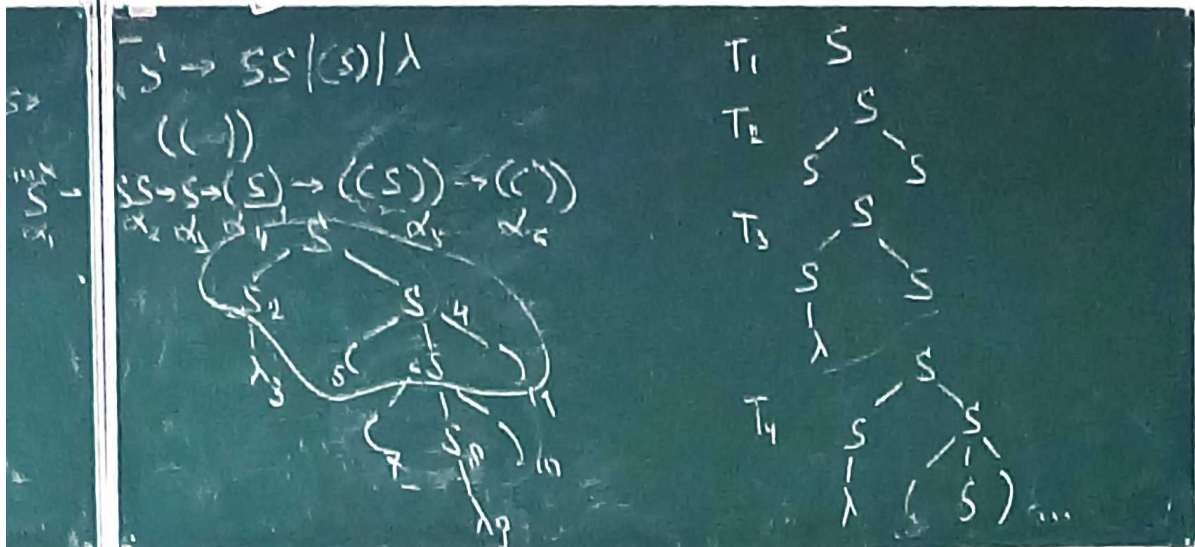 S → SS|(S)|λ
(( ))
S → SS → S → (S) → ((S)) → (( ))
α₁ α₂ α₃ α₄ α₅ α₆
S
S 2 S 4
λ 3 5 ( 6 S ) 11
( 7 S 8 ) 10
λ 9
T₁ S
T₂ S
S S
T₃ S
S S
λ
T₄ S
S S
λ ( S ) ...